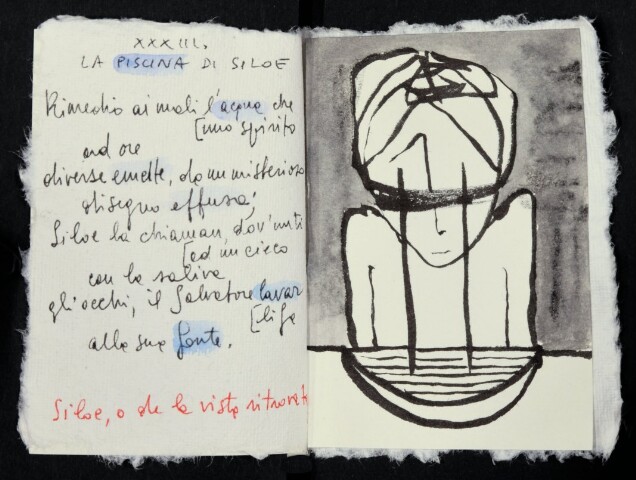 XXXIII.
LA PISCINA DI SILOE
Rimedio ai mali l'acqua che
[uno spirito
ad ore
diverse emette, da un misterioso
disegno effusa;
Siloe la chiaman, dov'unti
[ad un cieco
con la saliva
gli occhi, il Salvatore lavar
[li fa
alla sua fonte.
Siloe, o de la vista ritrovata